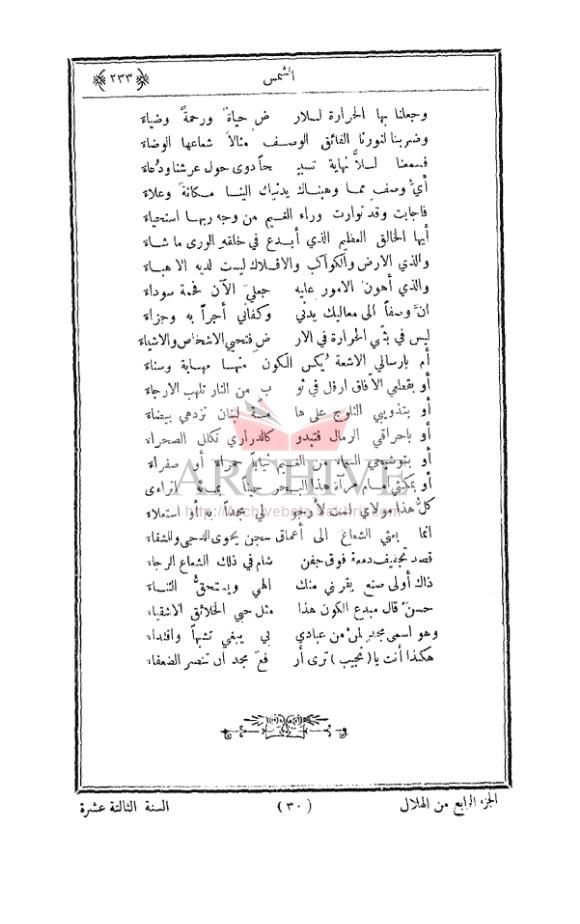 ﴿ ٢٣٣ ﴾ الشمس
وجعلنا بها الحرارة لـلار ض حياةً ورحمةً وضياء
وضربنا لنورنا الفائق الوصـ ـف مثالاً شعاعها الوضاء
فسمعنا لـلاّ نهاية تسبيـ حاً دوى حول عرشنا ودعاء
أيّ وصفٍ مما وهبناك يدنيك الينـا مـكانة وعلاء
فاجابت وقد توارت وراء الغيم من وجه ربهـا استحياء
أيها الخالق العظيم الذي أبـدع في خلقه الورى ما شاء
والذي الارض والكواكب والافلاك ليست لديه الا هباء
والذي أهون الامور عليه جعليَ الآن فحمة سوداء
انّ وصفاً الى معاليك يدني وكفاني أجراً به وجزاء
ليس في بثي الحرارة في الار ض فتحيي الاشخاص والاشياء
أم بارسالي الاشعة يُكس الكون منهـا مهابة وسناء
أو بقطعي الآفاق ارفل في ثو ب من النار تلهب الارجاء
أو بتذويبي الثلوج على ها مـة لبنان تزدهي بيضاء
أو باحراقي الرمال فتبدو كالدراري تكلل الصحراء
أو بتوشيحي السماء من الغيم ثياباً حمراء أو صفراء
كلّ هذا مولاي لست لأرجو لي مجداً به أو استعلاء
انما بعثي الشعاع الى أعماق سجن يحوى الدجى والشقاء
قصد تجفيف دمعة فوق جفن شام في ذلك الشعاع الرجاء
ذاك أولى صنع يقربني منك الهي ويستحقّ الثنـاء
حسنٌ قال مبدع الكون هذا مثل حبي الخلائق الاشقياء
وهو اسمى مجدٍ لمن من عبادي بي يبغي تشبهاً واقتداء
هكذا أنت يا (نجيب) ترى أر فعَ مجد ان تنصر الضعفاء
الجزء الرابع من الهلال (٣٠) السنة الثالثة عشرة
ARCHIVE